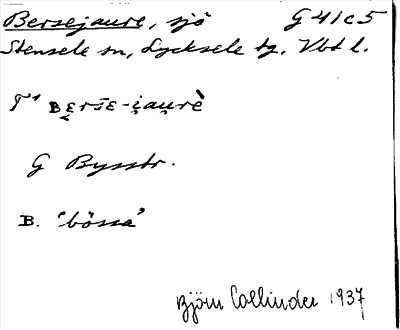 Bersejaure, sjö G 41c5
Stensele sn, Lycksele tg. Vbt l.
Bɛrsɛ-i̯au̯rè
G Bysstr.
B. 'bössa'
Björn Collinder 1937